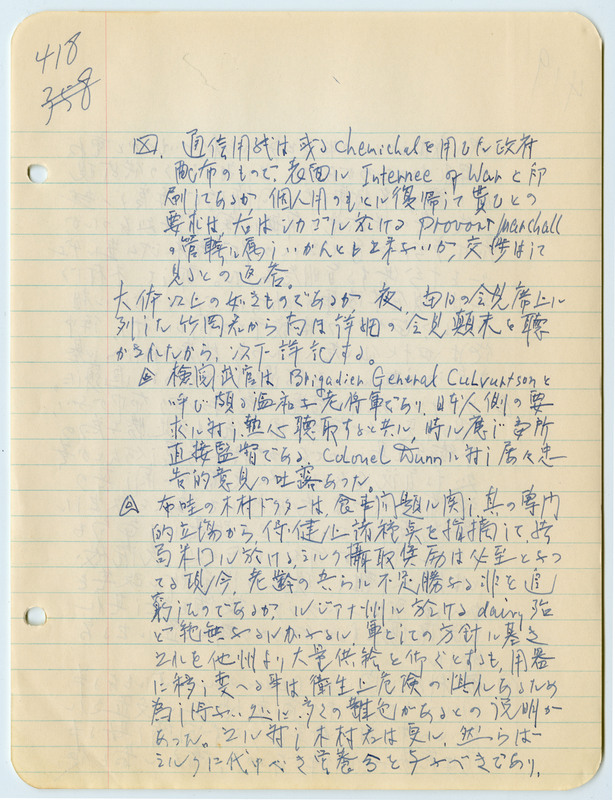 418
358
四、通信用紙は或るchemichalを用ひた政府
配布のもので、表面に Internee of War と印
刷してあるが 個人用のものに復帰して貰ひとの
要求は、右はシカゴに於ける Provost Marchall
の管轄に属しいかんとも出来ないが、交渉はして
見るとの返答。
大体以上の如きものであるが 夜、当日の会見席上に
列した竹岡君から尚ほ詳細の会見顛末を聴
かされたから、以下詳記する。
検閲武官は Brigadier General Culvurtson と
呼び頗る温和な老将軍であり、日本人側の要
求に対し熱心聴取すると共に、時に応じ
直接監督である Colonel Dunn に対し屡々忠
告的意見の吐露あった。
布哇の木村ドクターは、食事問題に関し其の専門
的立場から、保健上諸種点を指摘して、
米国に於ける、ミルク攝取奨励は必至となつ
てる現今、老齢の者らに不足勝なる非を追
窮したのであるが、ルジアナ州に於ける dairy 殆
ど絶無なるにかんがみ、軍としての方針に基き
これを他州より大量供給を仰ぐとするも、用器
に移し変へる事は衛生上危険の惧れあるため
為し得ない 多くの難色があるとの説明が
あつた。これに対し木村君は更に、然らば
ミルクに代ゆべき営養分を与へべきであり、